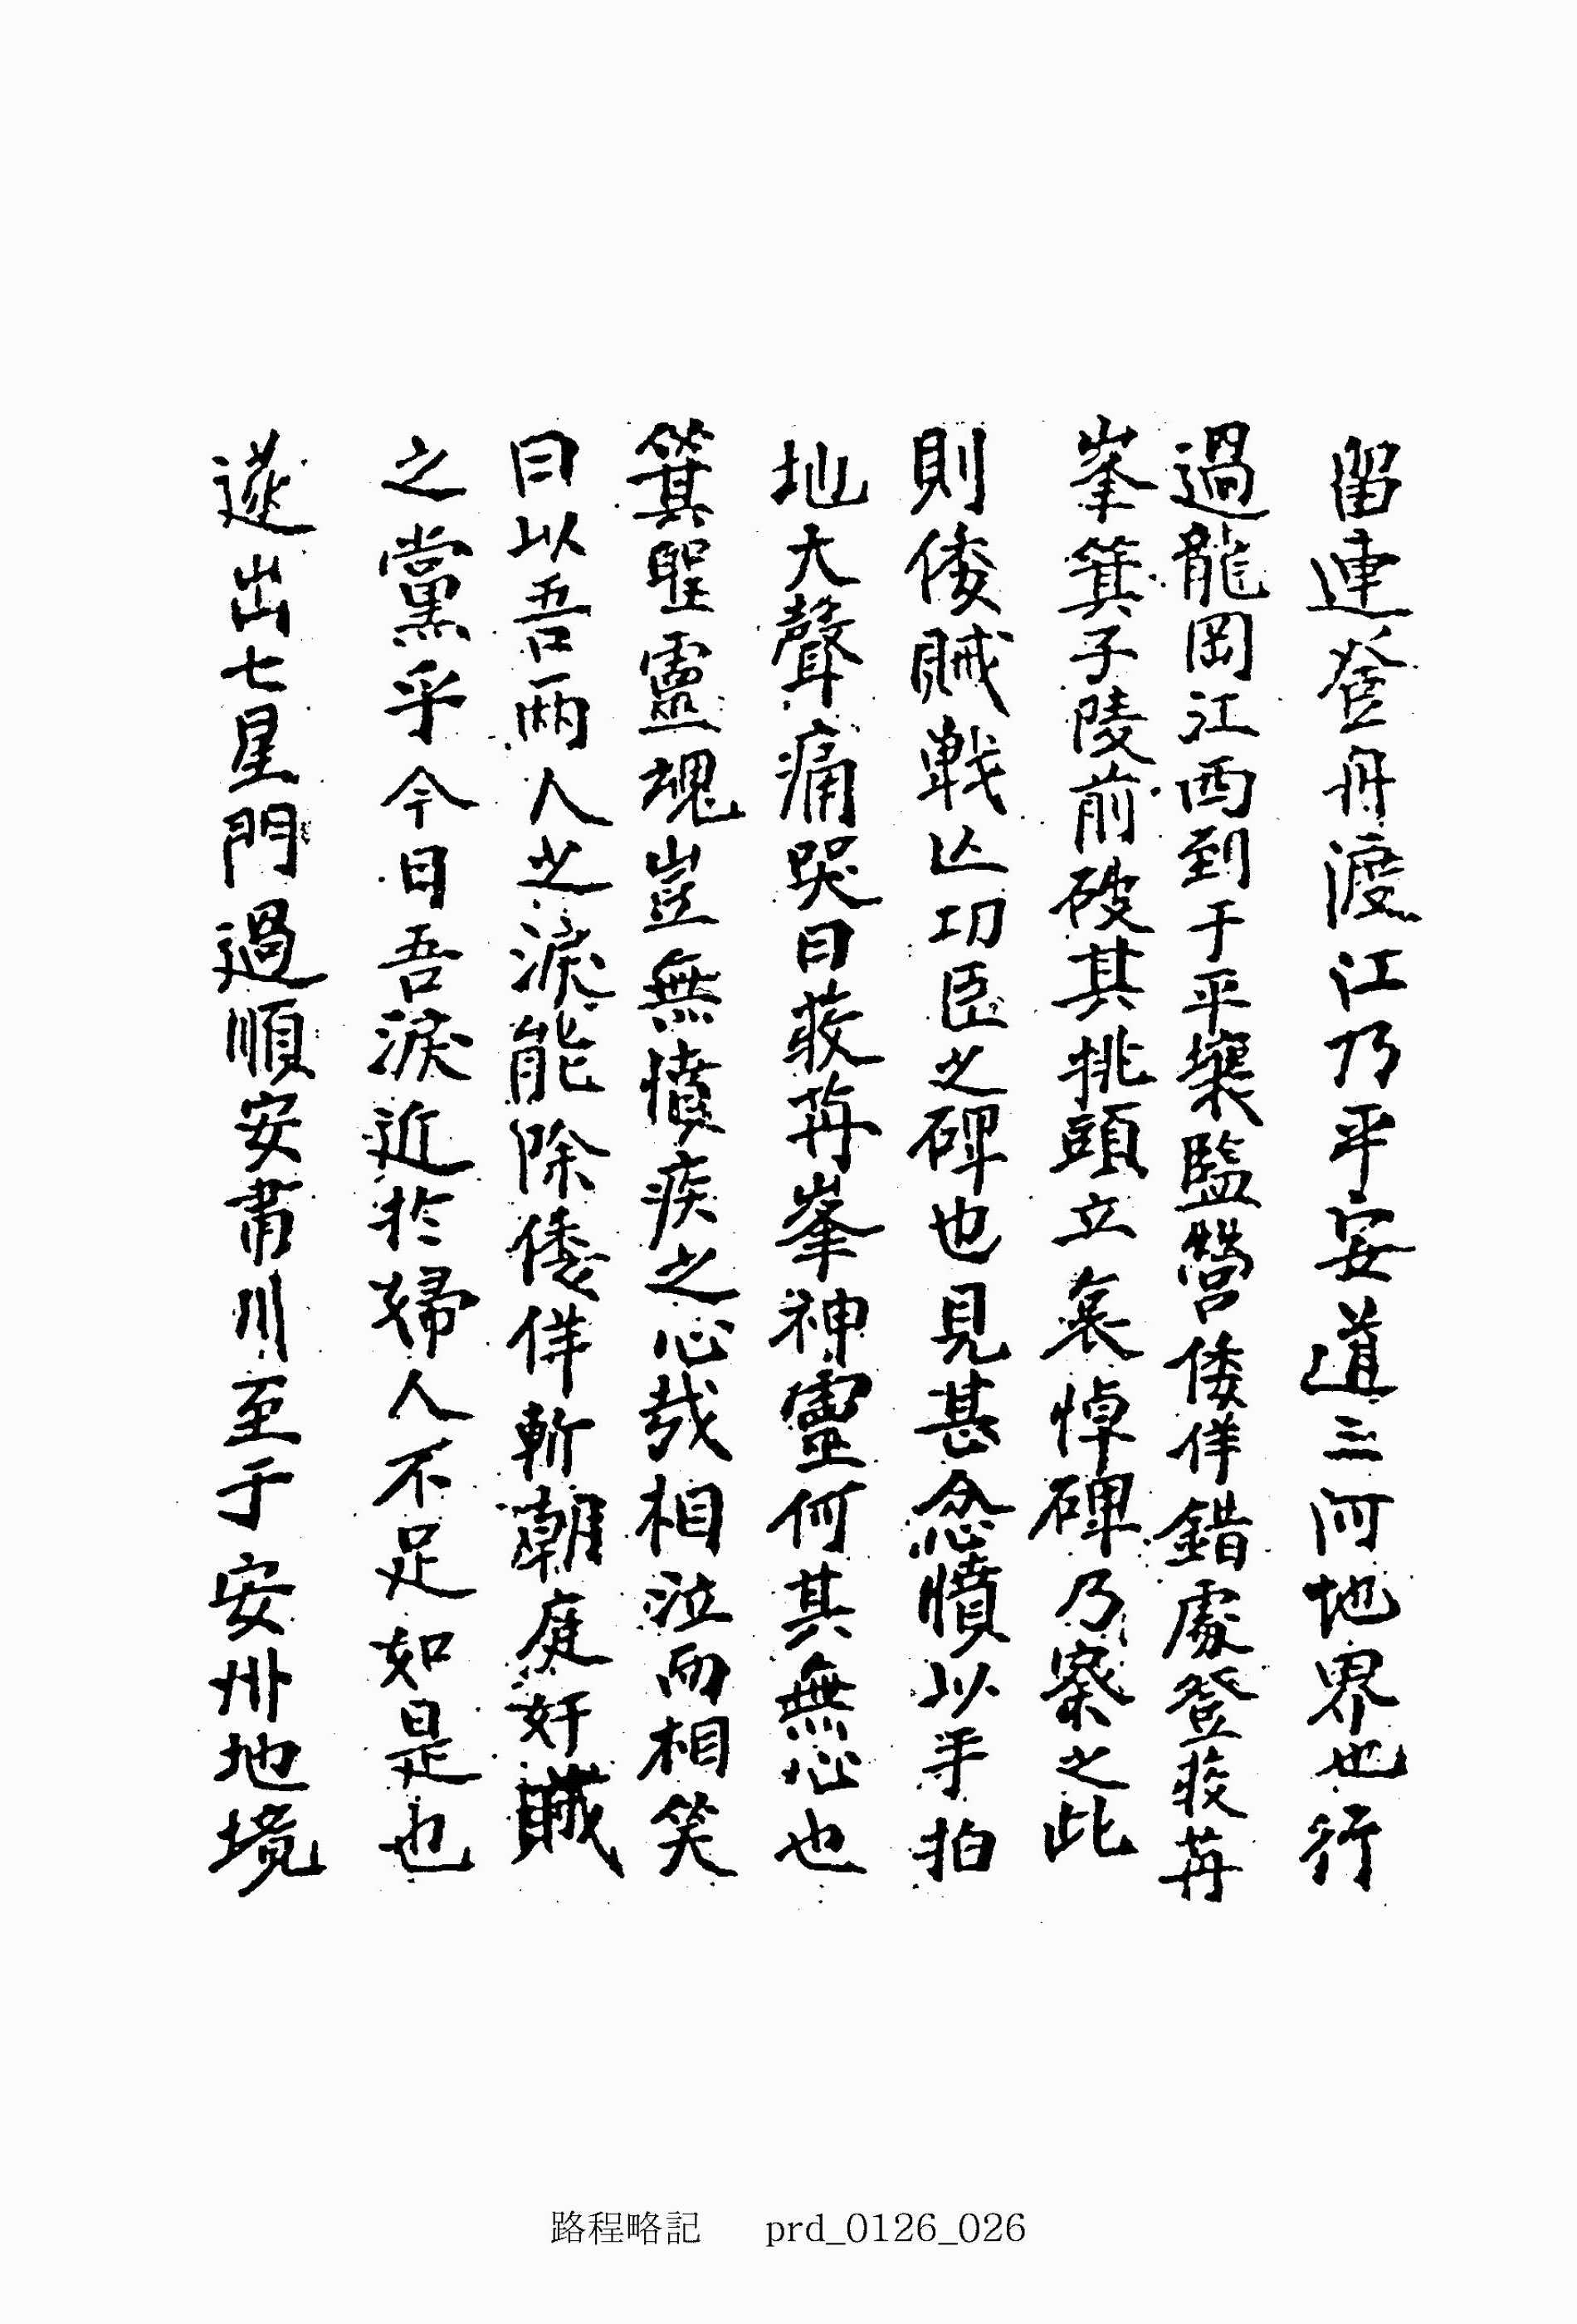 留連登舟渡江乃平安道三河地界也行
過龍岡江西到于平壤監營倭佯錯處登莪苒
峯箕子陵前破其挑頭立哀悼碑乃察之此
則倭賊戰亡功臣之碑也見甚忿憤以手拍
地大聲痛哭曰莪苒峯神靈何其無心也
箕聖靈魂豈無憤疾之心哉相泣而相笑
曰以吾兩人之淚能除倭佯斬朝庭奸賊
之黨乎今日吾淚近於婦人不足如是也
遂出七星門過順安肅川至于安州地境
路程略記 prd_0126_026